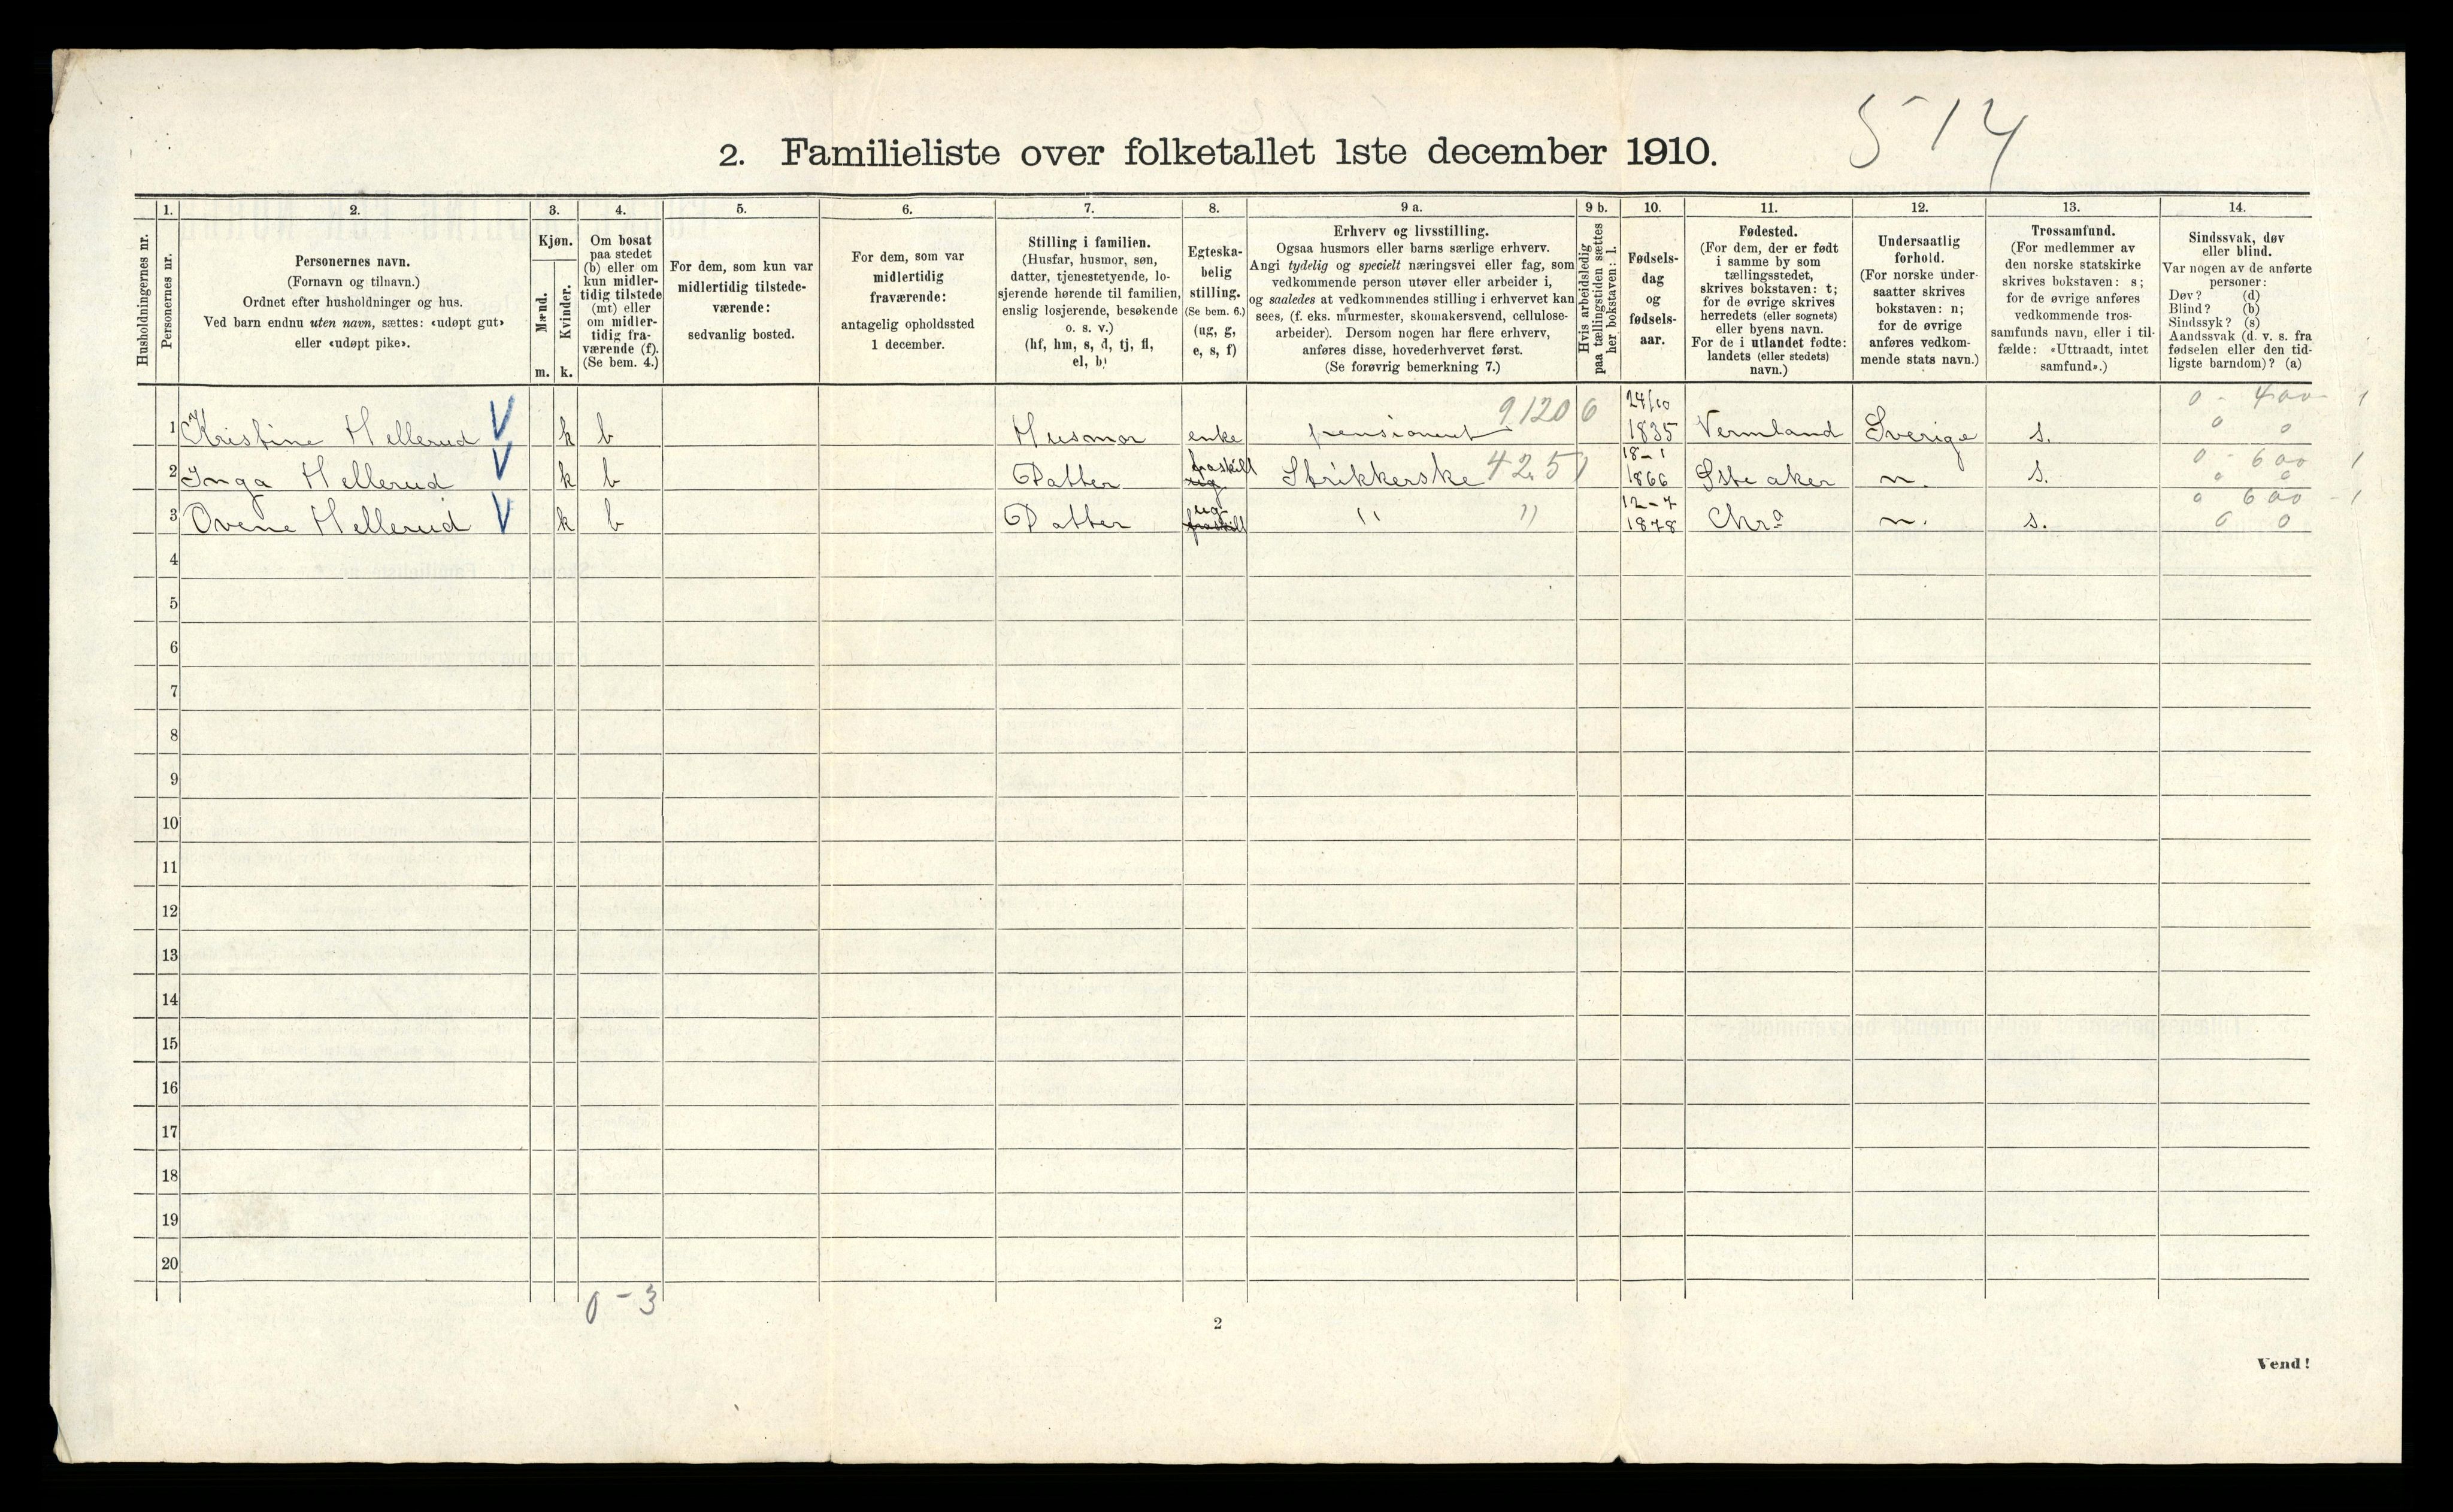 514
2. Familieliste over folketallet 1ste december 1910.
Husholdningernes nr.
1.
Personernes nr.
2.
Personernes navn.
(Fornavn og tilnavn.)
Ordnet efter husholdninger og hus.
Ved barn endnu uten navn, sættes: «udøpt gut»
eller «udøpt pike».
3.
Kjøn.
Mænd.
Kvinder.
m. k.
4.
Om bosat
paa stedet
(b) eller om
kun midler-
tidig tilstede
(mt) eller
om midler-
tidig fra-
værende (f).
(Se bem. 4.)
5.
For dem, som kun var
midlertidig tilstede-
værende:
sedvanlig bosted.
6.
For dem, som var
midlertidig
fraværende:
antagelig opholdssted
1 december.
7.
Stilling i familien.
(Husfar, husmor, søn,
datter, tjenestetyende, lo-
sjerende hørende til familien,
enslig losjerende, besøkende
o. s. v.)
(hf, hm, s, d, tj, fl,
el, b)
8.
Egteska-
belig
stilling.
(Se bem. 6.)
(ug, g,
e, s, f)
9 a.
Erhverv og livsstilling.
Ogsaa husmors eller barns særlige erhverv.
Angi tydelig og specielt næringsvei eller fag, som
vedkommende person utøver eller arbeider i,
og saaledes at vedkommendes stilling i erhvervet kan
sees, (f. eks. murmester, skomakersvend, cellulose-
arbeider). Dersom nogen har flere erhverv,
anføres disse, hovederhvervet først.
(Se forøvrig bemerkning 7.)
9 b.
Hvis arbeidsledig
paa tællingstiden sættes
her bokstaven: l.
10.
Fødsels-
dag
og
fødsels-
aar.
11.
Fødested.
(For dem, der er født
i samme by som
tællingsstedet,
skrives bokstaven: t;
for de øvrige skrives
herredets (eller sognets)
eller byens navn.
For de i utlandet fødte:
landets (eller stedets)
navn.)
12.
Undersaatlig
forhold.
(For norske under-
saatter skrives
bokstaven: n;
for de øvrige
anføres vedkom-
mende stats navn.)
13.
Trossamfund.
(For medlemmer av
den norske statskirke
skrives bokstaven: s;
for de øvrige anføres
vedkommende tros-
samfunds navn, eller i til-
fælde: «Uttraadt, intet
samfund».)
14.
Sindssvak, døv
eller blind.
Var nogen av de anførte
personer:
Døv? (d)
Blind? (b)
Sindssyk? (s)
Aandssvak (d. v. s. fra
fødselen eller den tid-
ligste barndom)? (a)
1 Kristine Hellerud V k b Husmor enke pensioneret 9120 6 24/10 1835 Vermland Sverige s. 0 - 400 - 1 0 0
2 Inga Hellerud V k b Datter fraskilt ug Strikkerske 4251 18-1 1866 Østre aker n. s. 0 - 600 1 0 0
3 Ovene Hellerud V k b Datter ug fraskilt " " 12-7 1878 Chra n. s. 0 600 - 1 0 0
4
5
6
7
8
9
10
11
12
13
14
15
16
17
18
19
20
0 - 3
2
Vend!